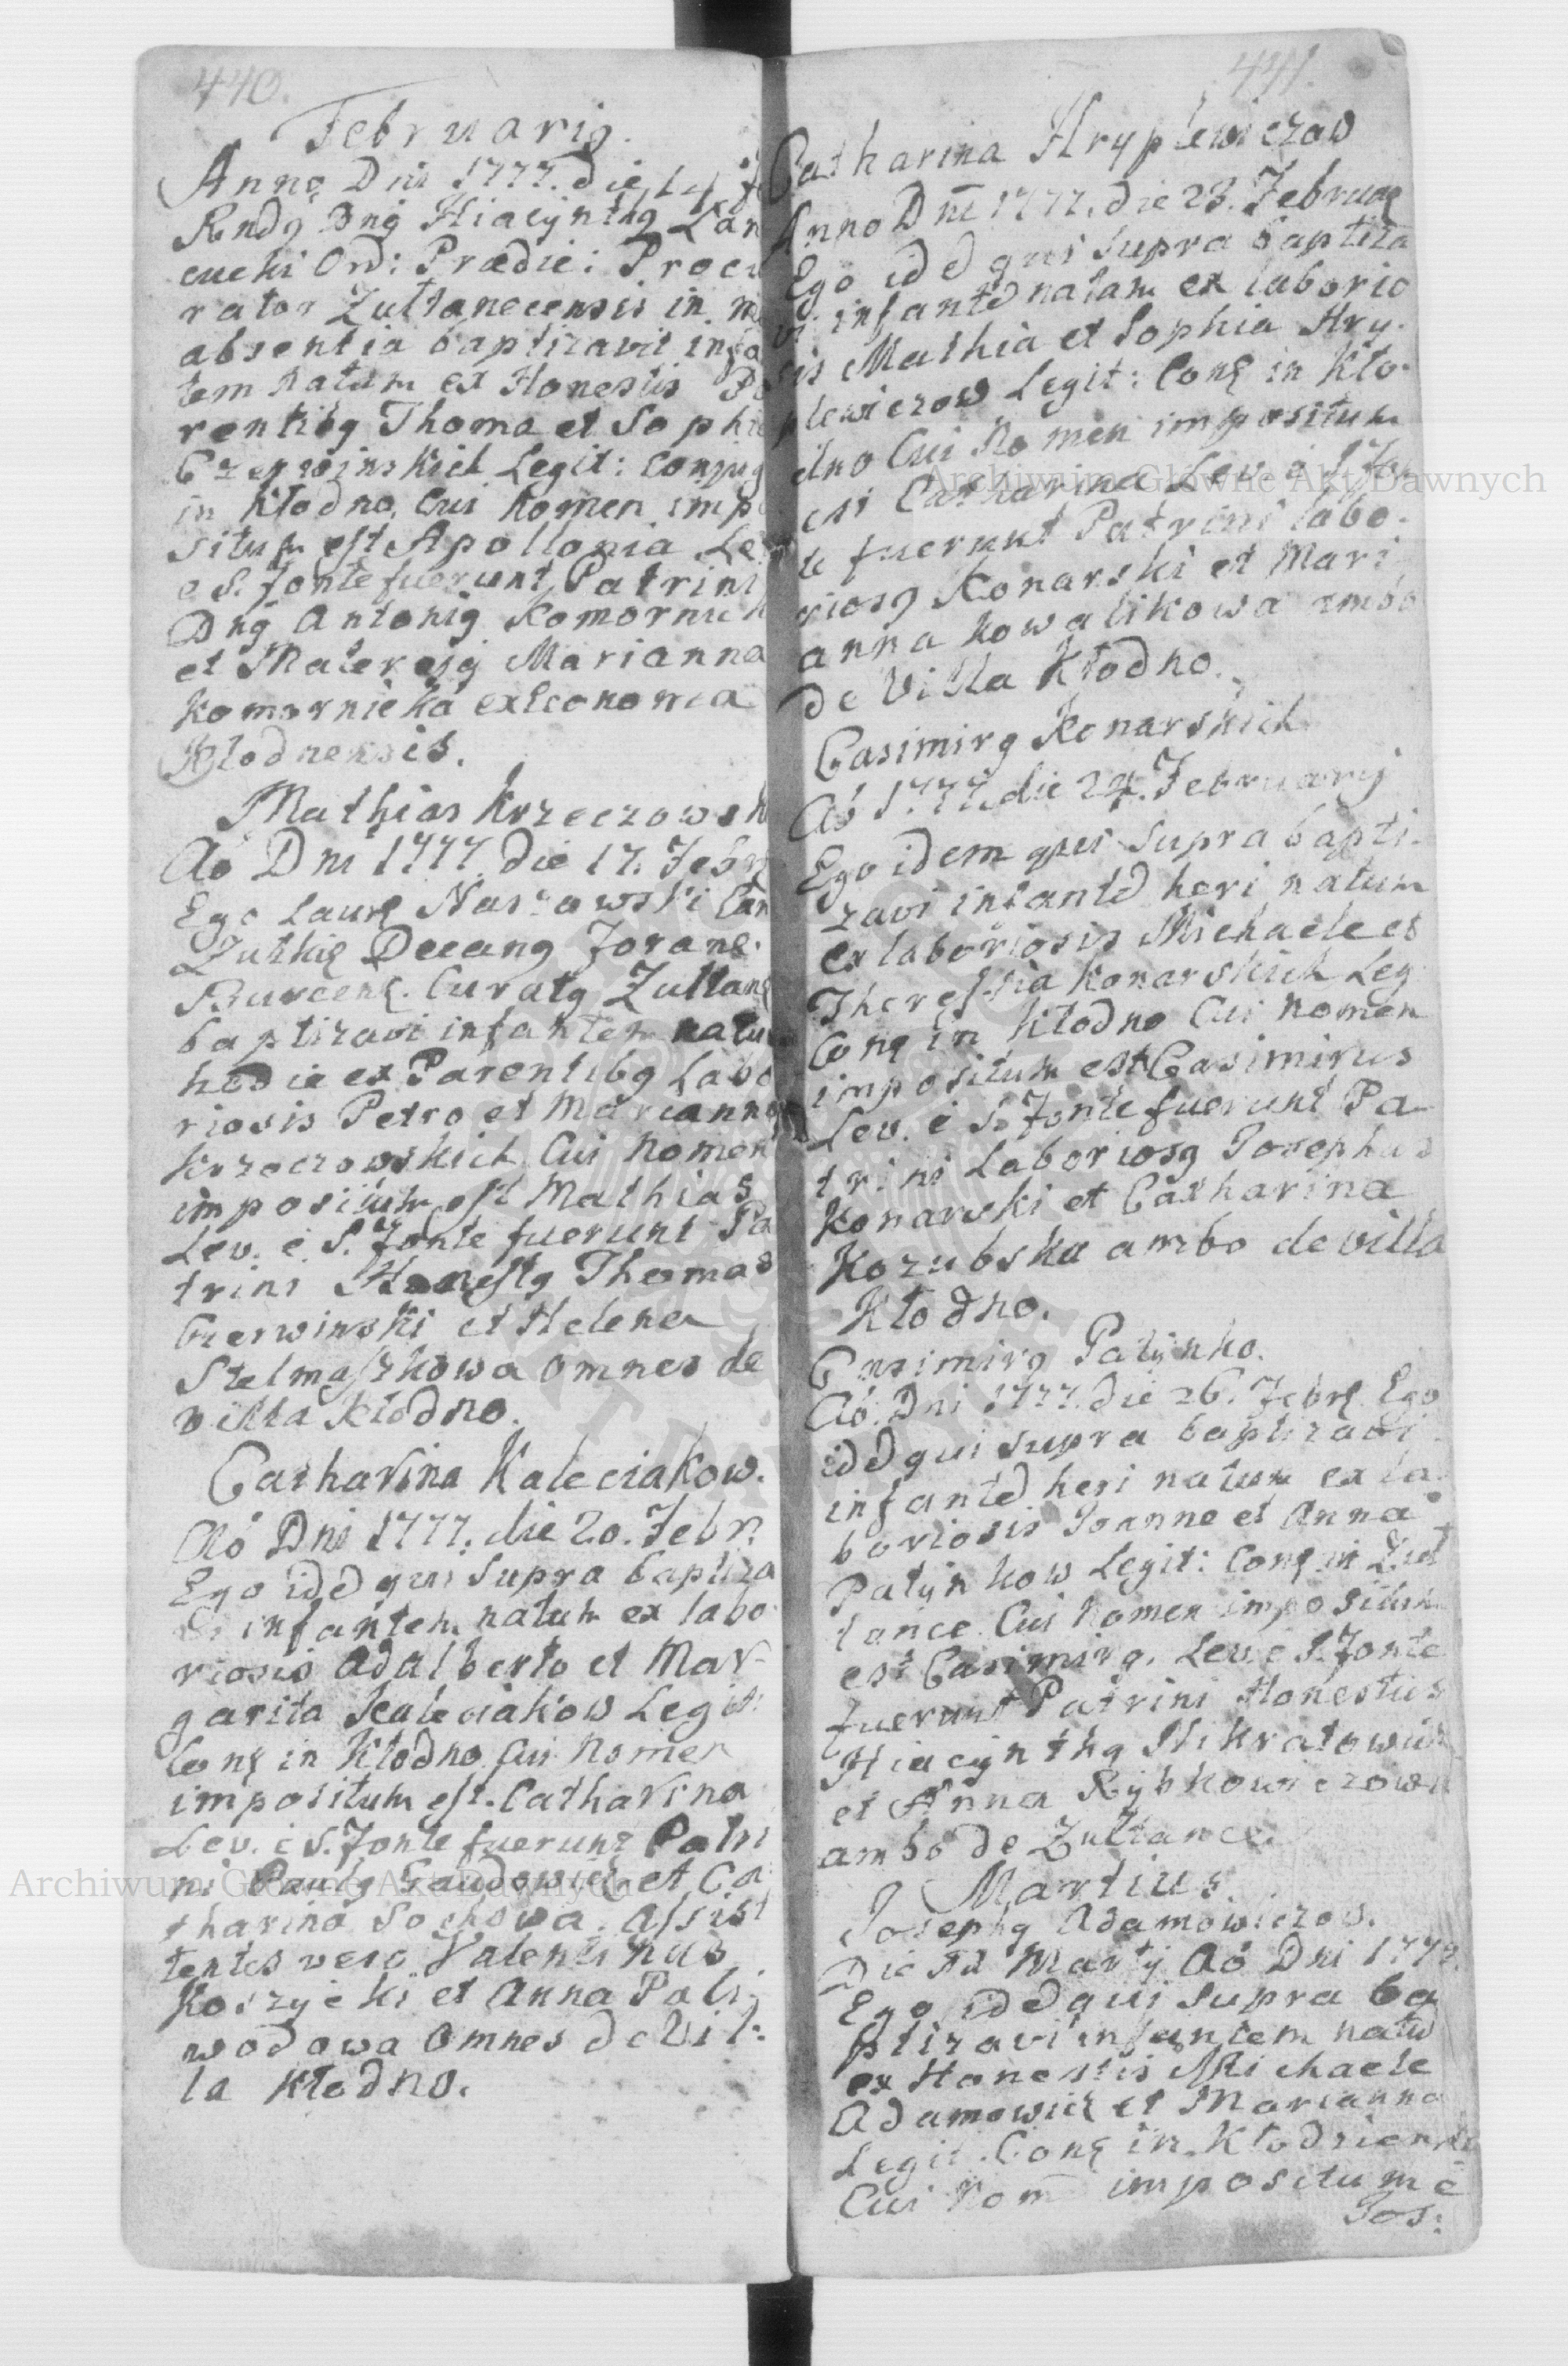 440.
Februarig.
Anno Dni 1777. die 14 fe
Rndg Dng Hiacynthg Lan
cucki Ord: Prædic: Procu
rator Zułtanecensis in m
absentia baptizavit infa
tem natum ex Honestis Pa
rentibg Thoma et Sophia
Czerwinskich Legit: Conjug
in Kłodno, Cui Nomen impo
situm est Apollonia Lev
e S. fonte fuerunt Patrini
Dng Antonig Komornick
et Mater ejg Marianna
Komornicka ex Economia
Kłodnensis.
Mathias Krzeczowsk
Aō Dni 1777. die 17. Febr
Ego Laur Naszowski Can
Zutkię Decang Forane.
Buscen. Curatg Zułtanę
baptizavi infantem natum
hodie ex Parentibg Labo
riosis Petro et Marianna
Krzeczowskich Cui Nomen
impositum est Mathias
Lev. e S. Fonte fuerunt Pa
trini Honestg Thomas
Czerwinski et Helena
Stelmaszkowa omnes de
villa Kłodno.
Catharina Kaleciakow.
Aō Dni 1777. die 20. Febr.
Ego idē qui supra baptiza
vi infantem natum ex labo
riosis Adalberto et Mar-
garita Kaleciakow Legit:
Conę in Kłodno Cui Nomen
impositum est. Catharina
Lev. e S. Fonte fuerunt Patri
ni Paulg Gaudowicz et Ca
tharina Sochowa. Assist
tentes vero Valentinus
Koszycki et Anna Pali
wodowa Omnes de Vil:
la Kłodno.
441.
Catharina Hryplewiczow
Anno Dni 1777. die 23. Februaę
Ego idē qui supra baptiza
vi infantē natam ex laborio
sis Mathia et Sophia Hry.
plewiczow Legit: Conę in Kło.
dno Cui Nomen impositum
est Catharina Lev. e S Fon
te fuerunt Patrini labo.
riosg Konarski et Mari
anna Kowalikowa ambo
de Villa Kłodno.
Casimirg Konarskich
Aō 1777. die 24. Februarij
Ego idem qui supra bapti.
zavi infantē heri natum
ex laboriosis Michaele et
Theressia Konarskich Leg
Conę in Kłodno Cui Nomen
impositum est Casimirus
Lev. e S. Fonte fuerunt Pa
trini Laboriosg Josephus
Konarski et Catharina
Kozubska ambo de villa
Kłodno.
Casimirg Patynko.
Aō. Dni 1777. die 26. Febrę Ego
idē qui supra baptizavi
infantē heri natum ex la
boriosis Joanne et Anna
Patynkow Legit: Conę in Zuł
tance Cui Nomen impositum
est Casimirg. Lev. e S. Fonte
fuerunt Patrini Honestus
Hiacynthg Mikratowicz
et Anna Rybkowiczowa
ambo de Zułtance.
Martius.
Josephg Adamowiczow.
Die Martij Aō Dni 1777.
Ego idē qui supra ba
ptizavi infantem natū
ex Honestis Michaele
Adamowicz et Marianna
Legit. Conę in Kłodzienko
Cui Nom impositum ē
Jos:
Archiwum Główne Akt Dawnych
Archiwum Główne Akt Dawnych